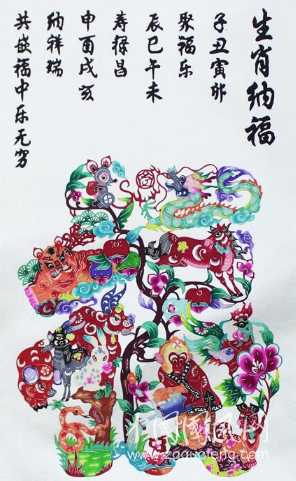 生肖纳福
子丑寅卯
聚福乐
辰巳午未
寿禄昌
申酉戌亥
纳祥瑞
共嵌福中乐无穷
中国国风网
www.zgguofeng.com